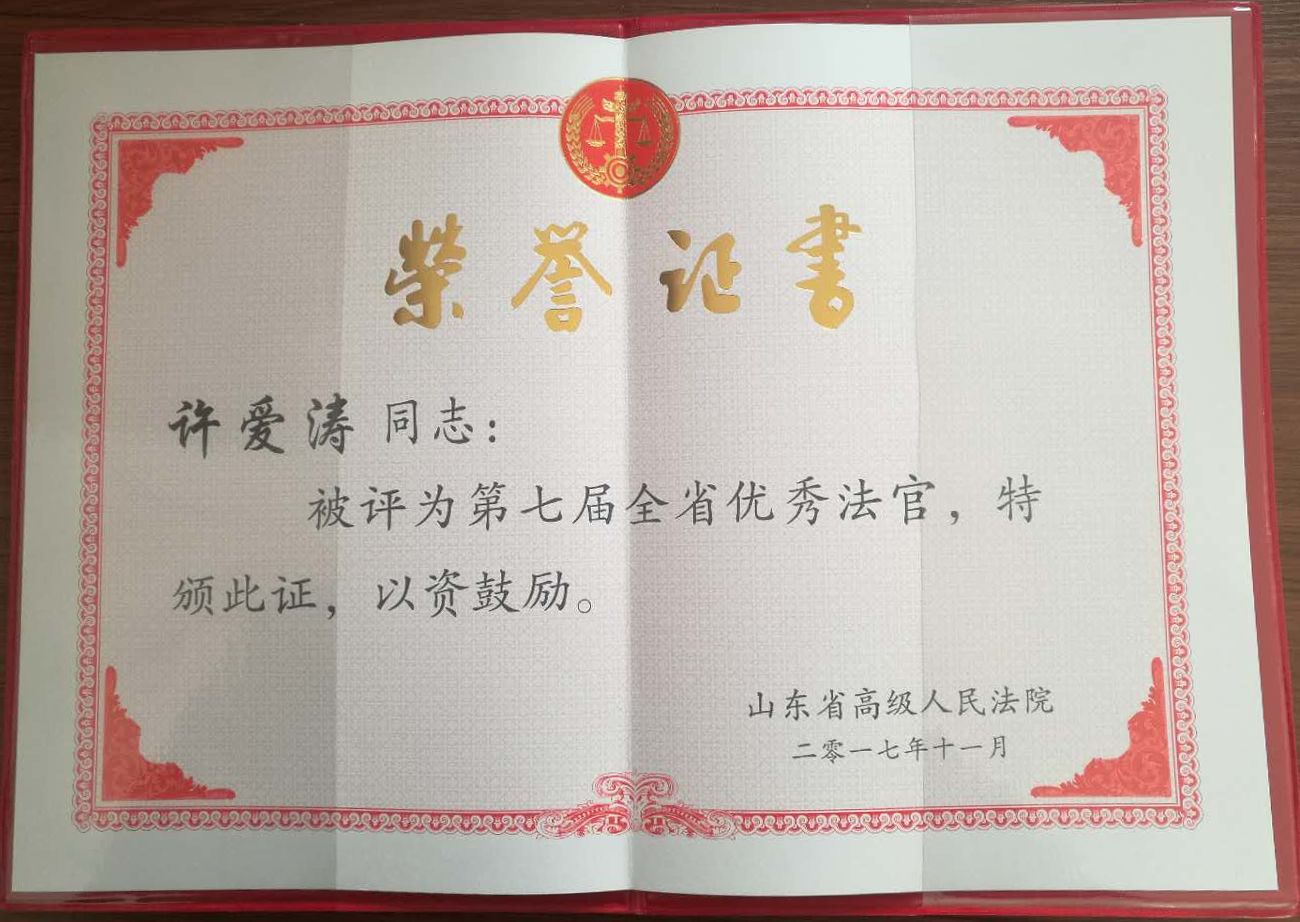 荣誉证书
许爱涛 同志：
被评为第七届全省优秀法官，特
颁此证，以资鼓励。
山东省高级人民法院
二零一七年十一月